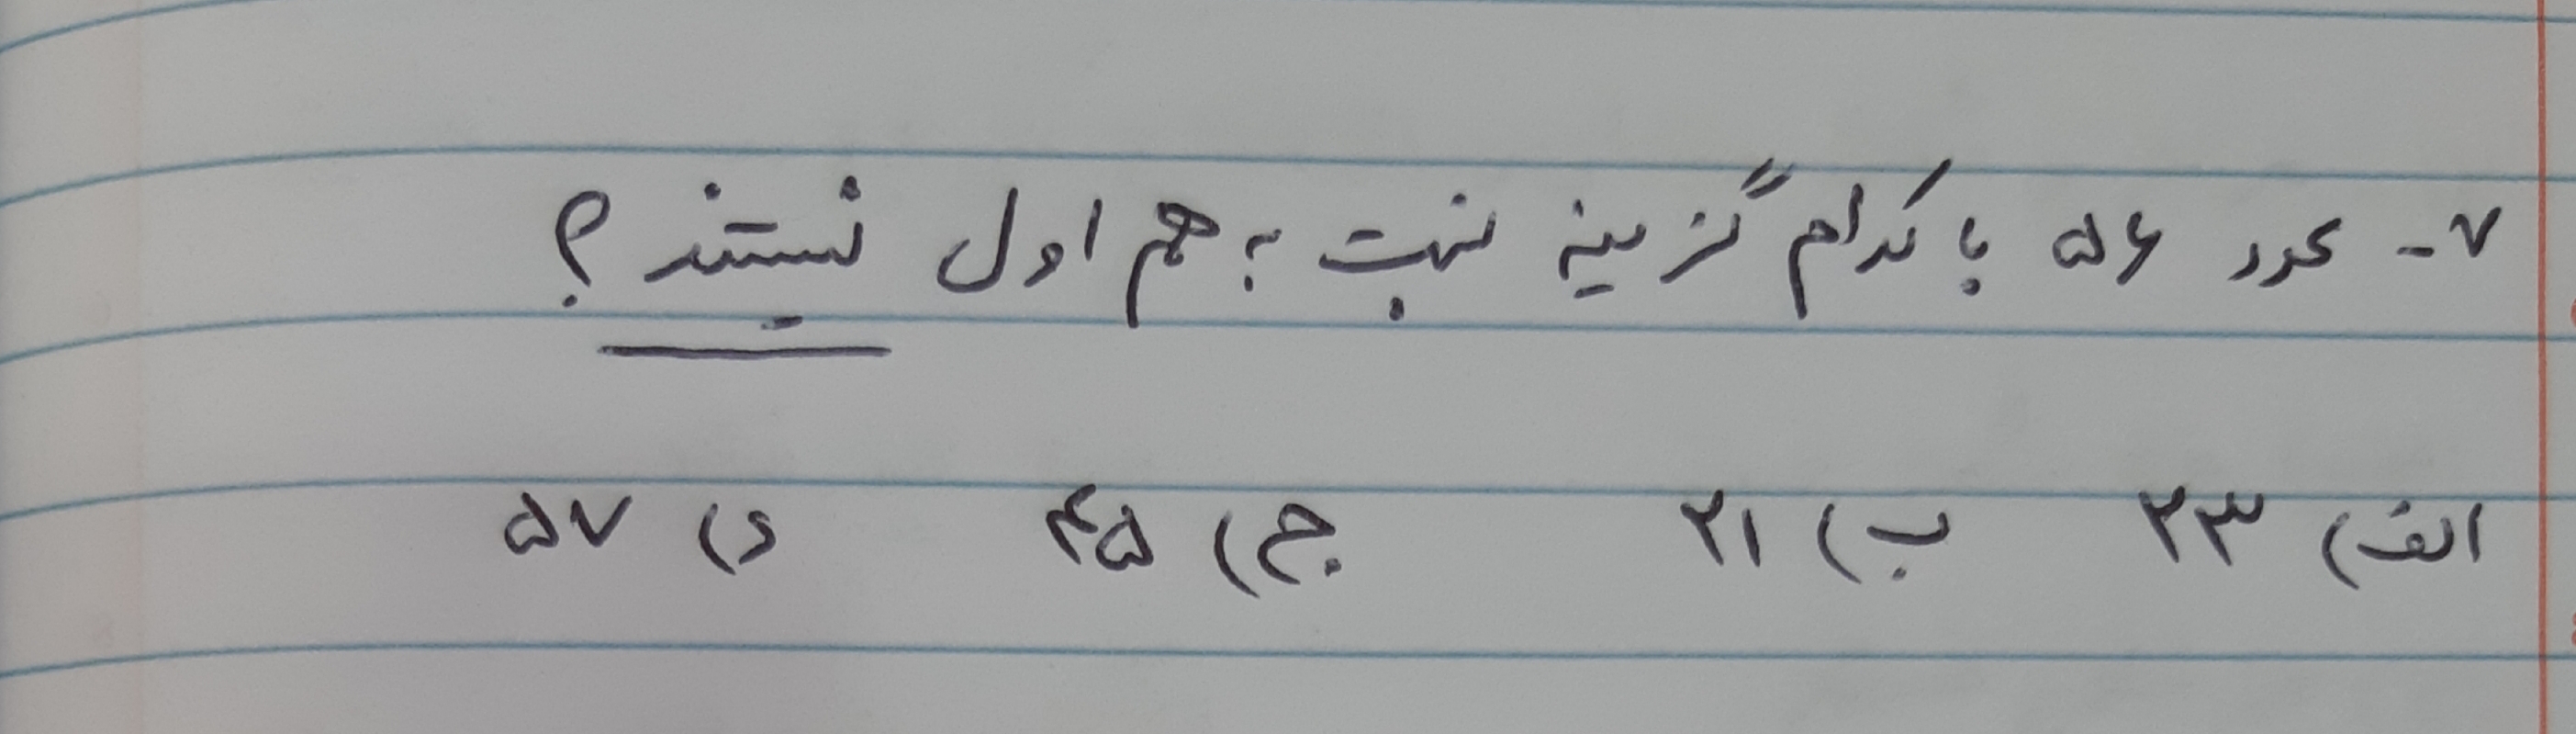 ۷- عدد ۵۶ با کدام گزینه نسبت به هم اول نیستند؟
الف) ۲۳ ب) ۲۱ ج) ۴۵ د) ۵۷